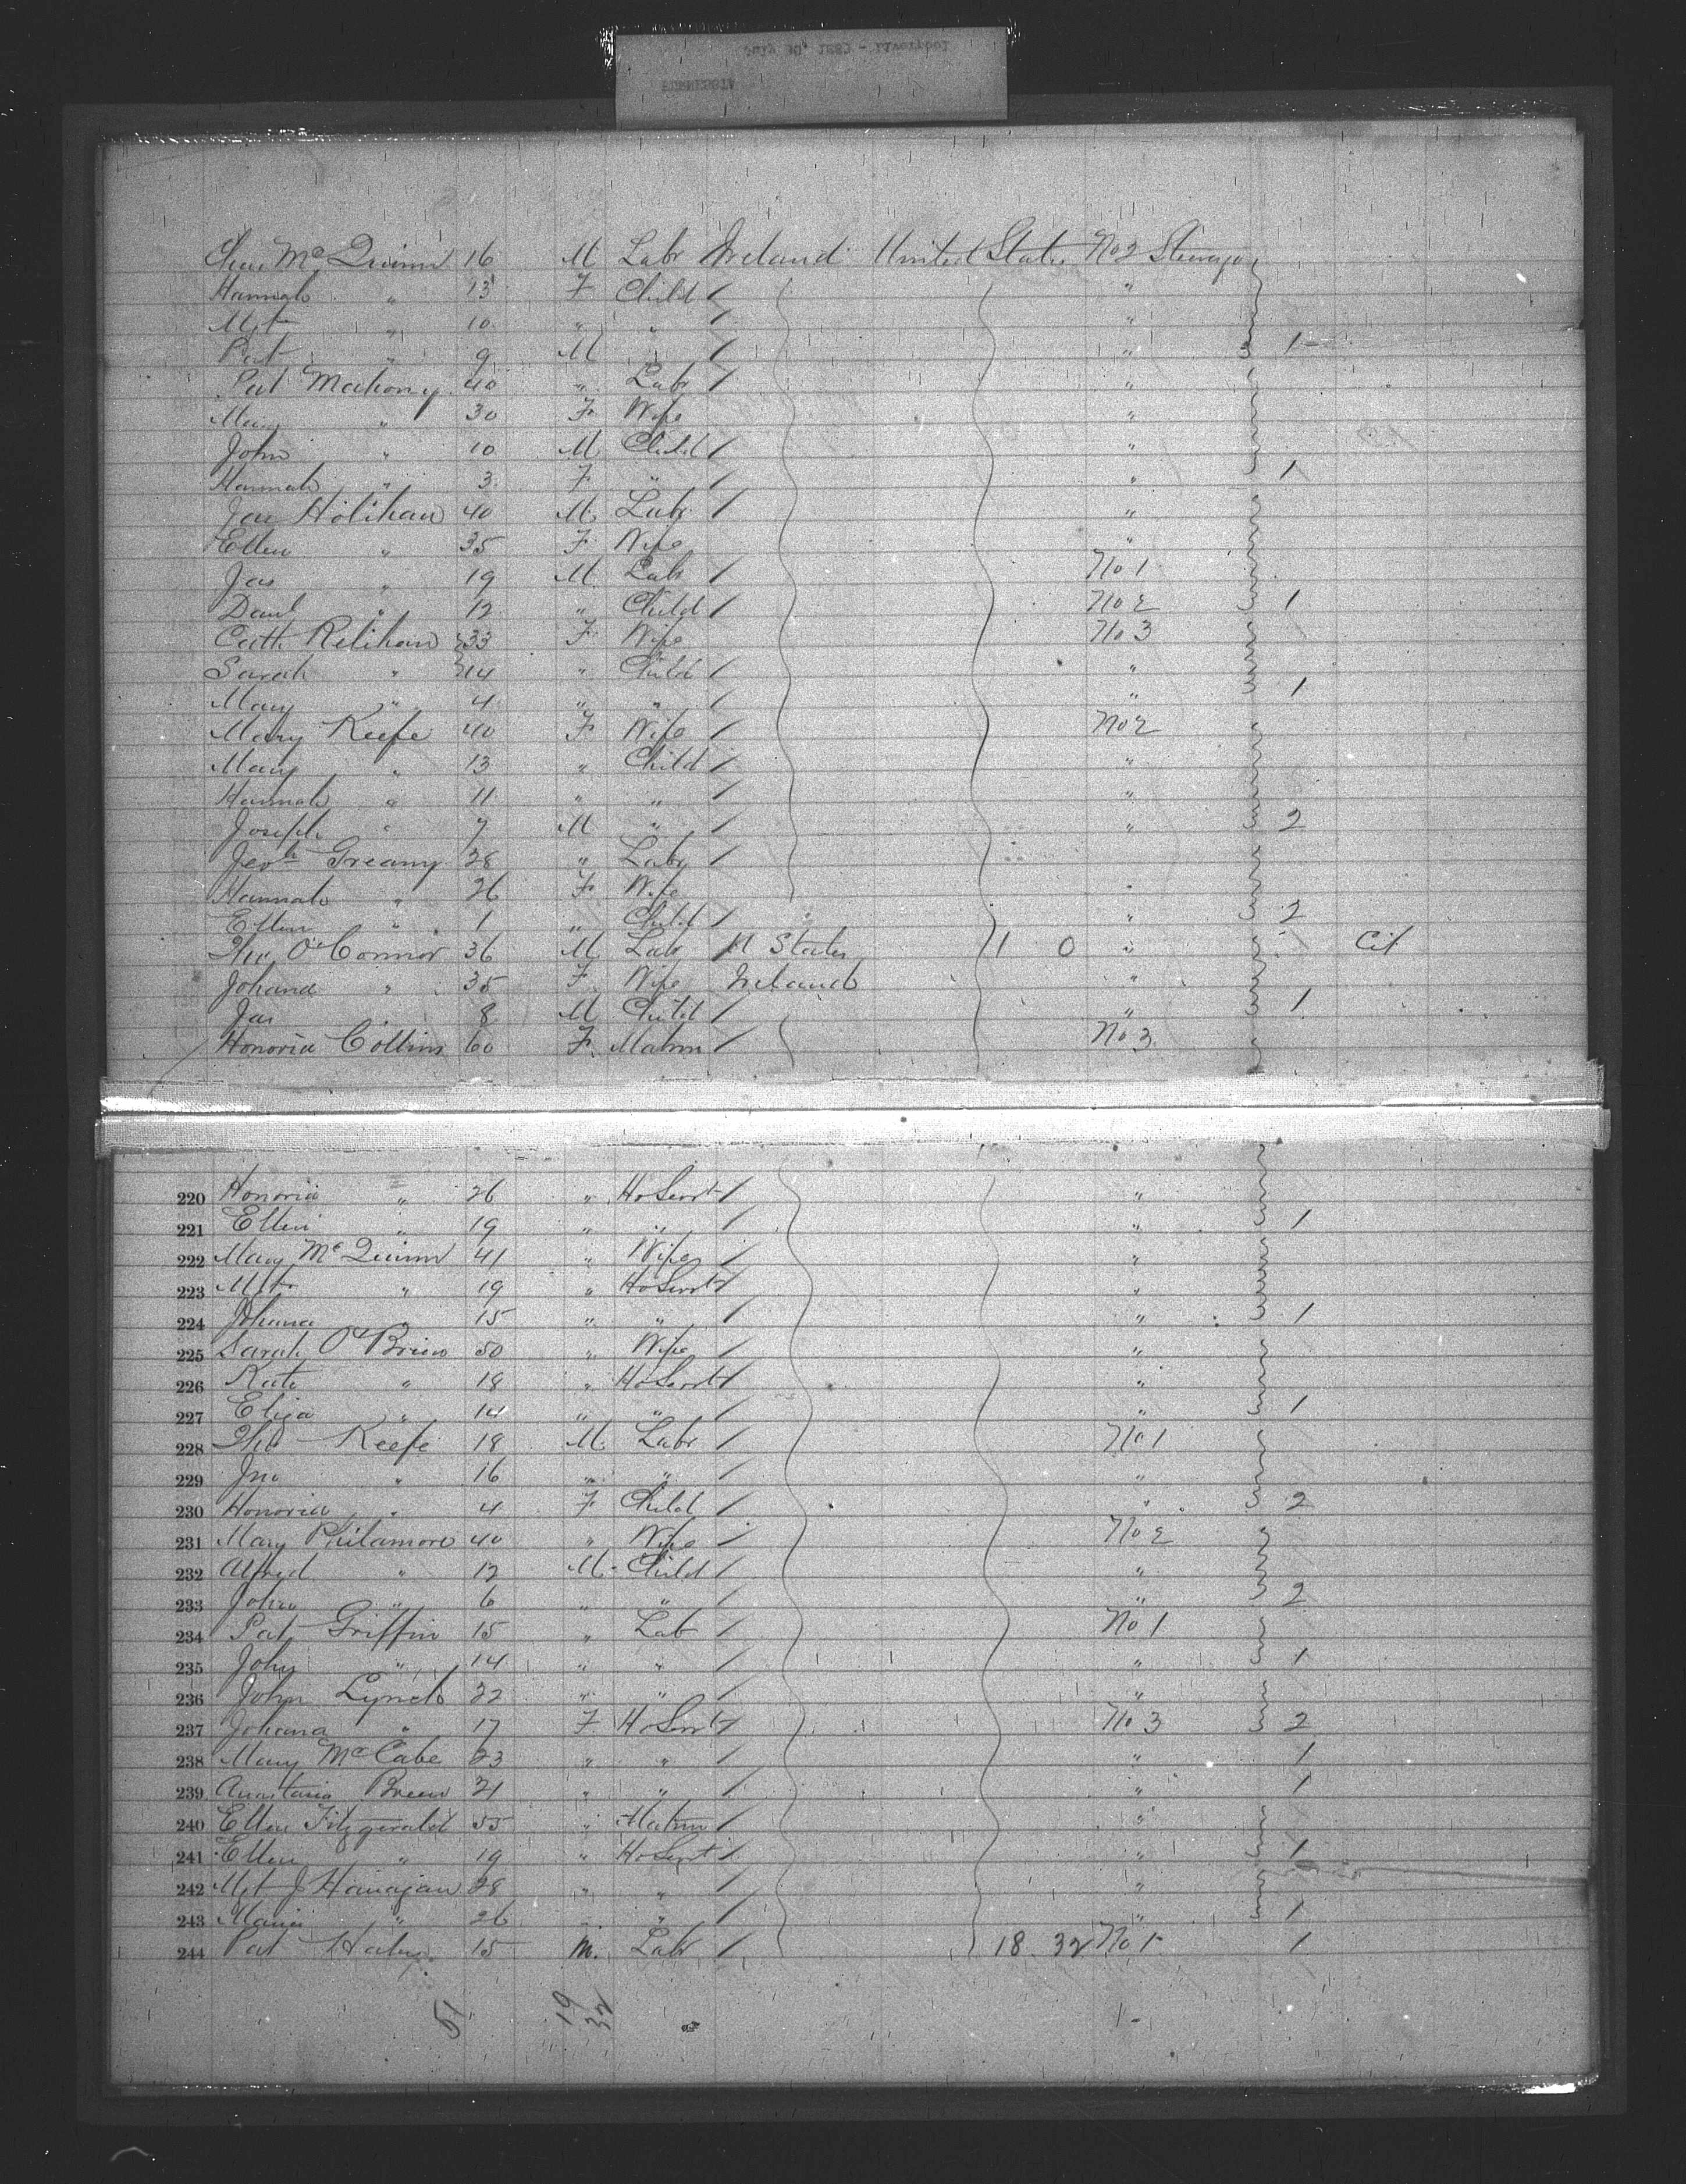 Mc Quinn 16 M Labr Ireland United States No 2 Steerage
Hannah " 13 F Child /
Mgt " 10 " " / "
Pat " 9 M " / " 1
Pat Mahony 40 " Labr / "
Mary " 30 F Wife "
John " 10 M Child / "
Hannah " 3 F " / " 1
Jas Holihan 40 M Labr / "
Ellen " 35 F Wife "
Jas " 19 M Labr / No 1
Danl " 12 " Child / No 2 1
Cath Relihan 33 F Wife No 3
Sarah " 14 " Child / "
Mary " 4 " " / " 1
Mary Keefe 40 F Wife / No 2
Mary " 13 " Child / "
Hannah " 11 " " / "
Joseph " 7 M " / " 2
Jeoh Greany 28 " Labr /
Hannah " 26 F Wife "
Ellen " 1 " Child / " 2
Ths O'Connor 36 M Labr U States 1 0 " Cit
Johana " 35 F Wife Ireland "
Jas " 8 M Child / " 1
Honoria Collins 60 F Matrn / No 3
220 Honoria " 26 " HoServt / "
221 Ellen " 19 " " / " 1
222 Mary Mc Quinn 41 " Wife / "
223 Mgt " 19 " HoServt / "
224 Johana " 15 " " / " 1
225 Sarah O'Brien 50 " Wife / "
226 Kate " 18 " HoServt / "
227 Eliza " 14 " " / " 1
228 Ths Keefe 18 M Labr / No 1
229 Jno " 16 " " / "
230 Honoria " 4 F Child / " 2
231 Mary Philamore 40 " Wife / No 2
232 Alfred " 12 M Child / "
233 John " 6 " " / " 2
234 Pat Griffin 15 " Lab / No 1
235 John " 14 " " / " 1
236 John Lynch 22 " " / "
237 Johana " 17 F HoServt / No 3 2
238 Mary McCabe 23 " " / " 1
239 Anastasia Breen 21 " " / " 1
240 Ellen Fitzgerald 55 " Matrn / "
241 Ellen " 19 " HoServt / " 1
242 Mgt J Hanagan 28 " " / "
243 Maria " 26 " " / " 1
244 Pat 15 M. Labr / 18 32 No 1 1
51 19 32